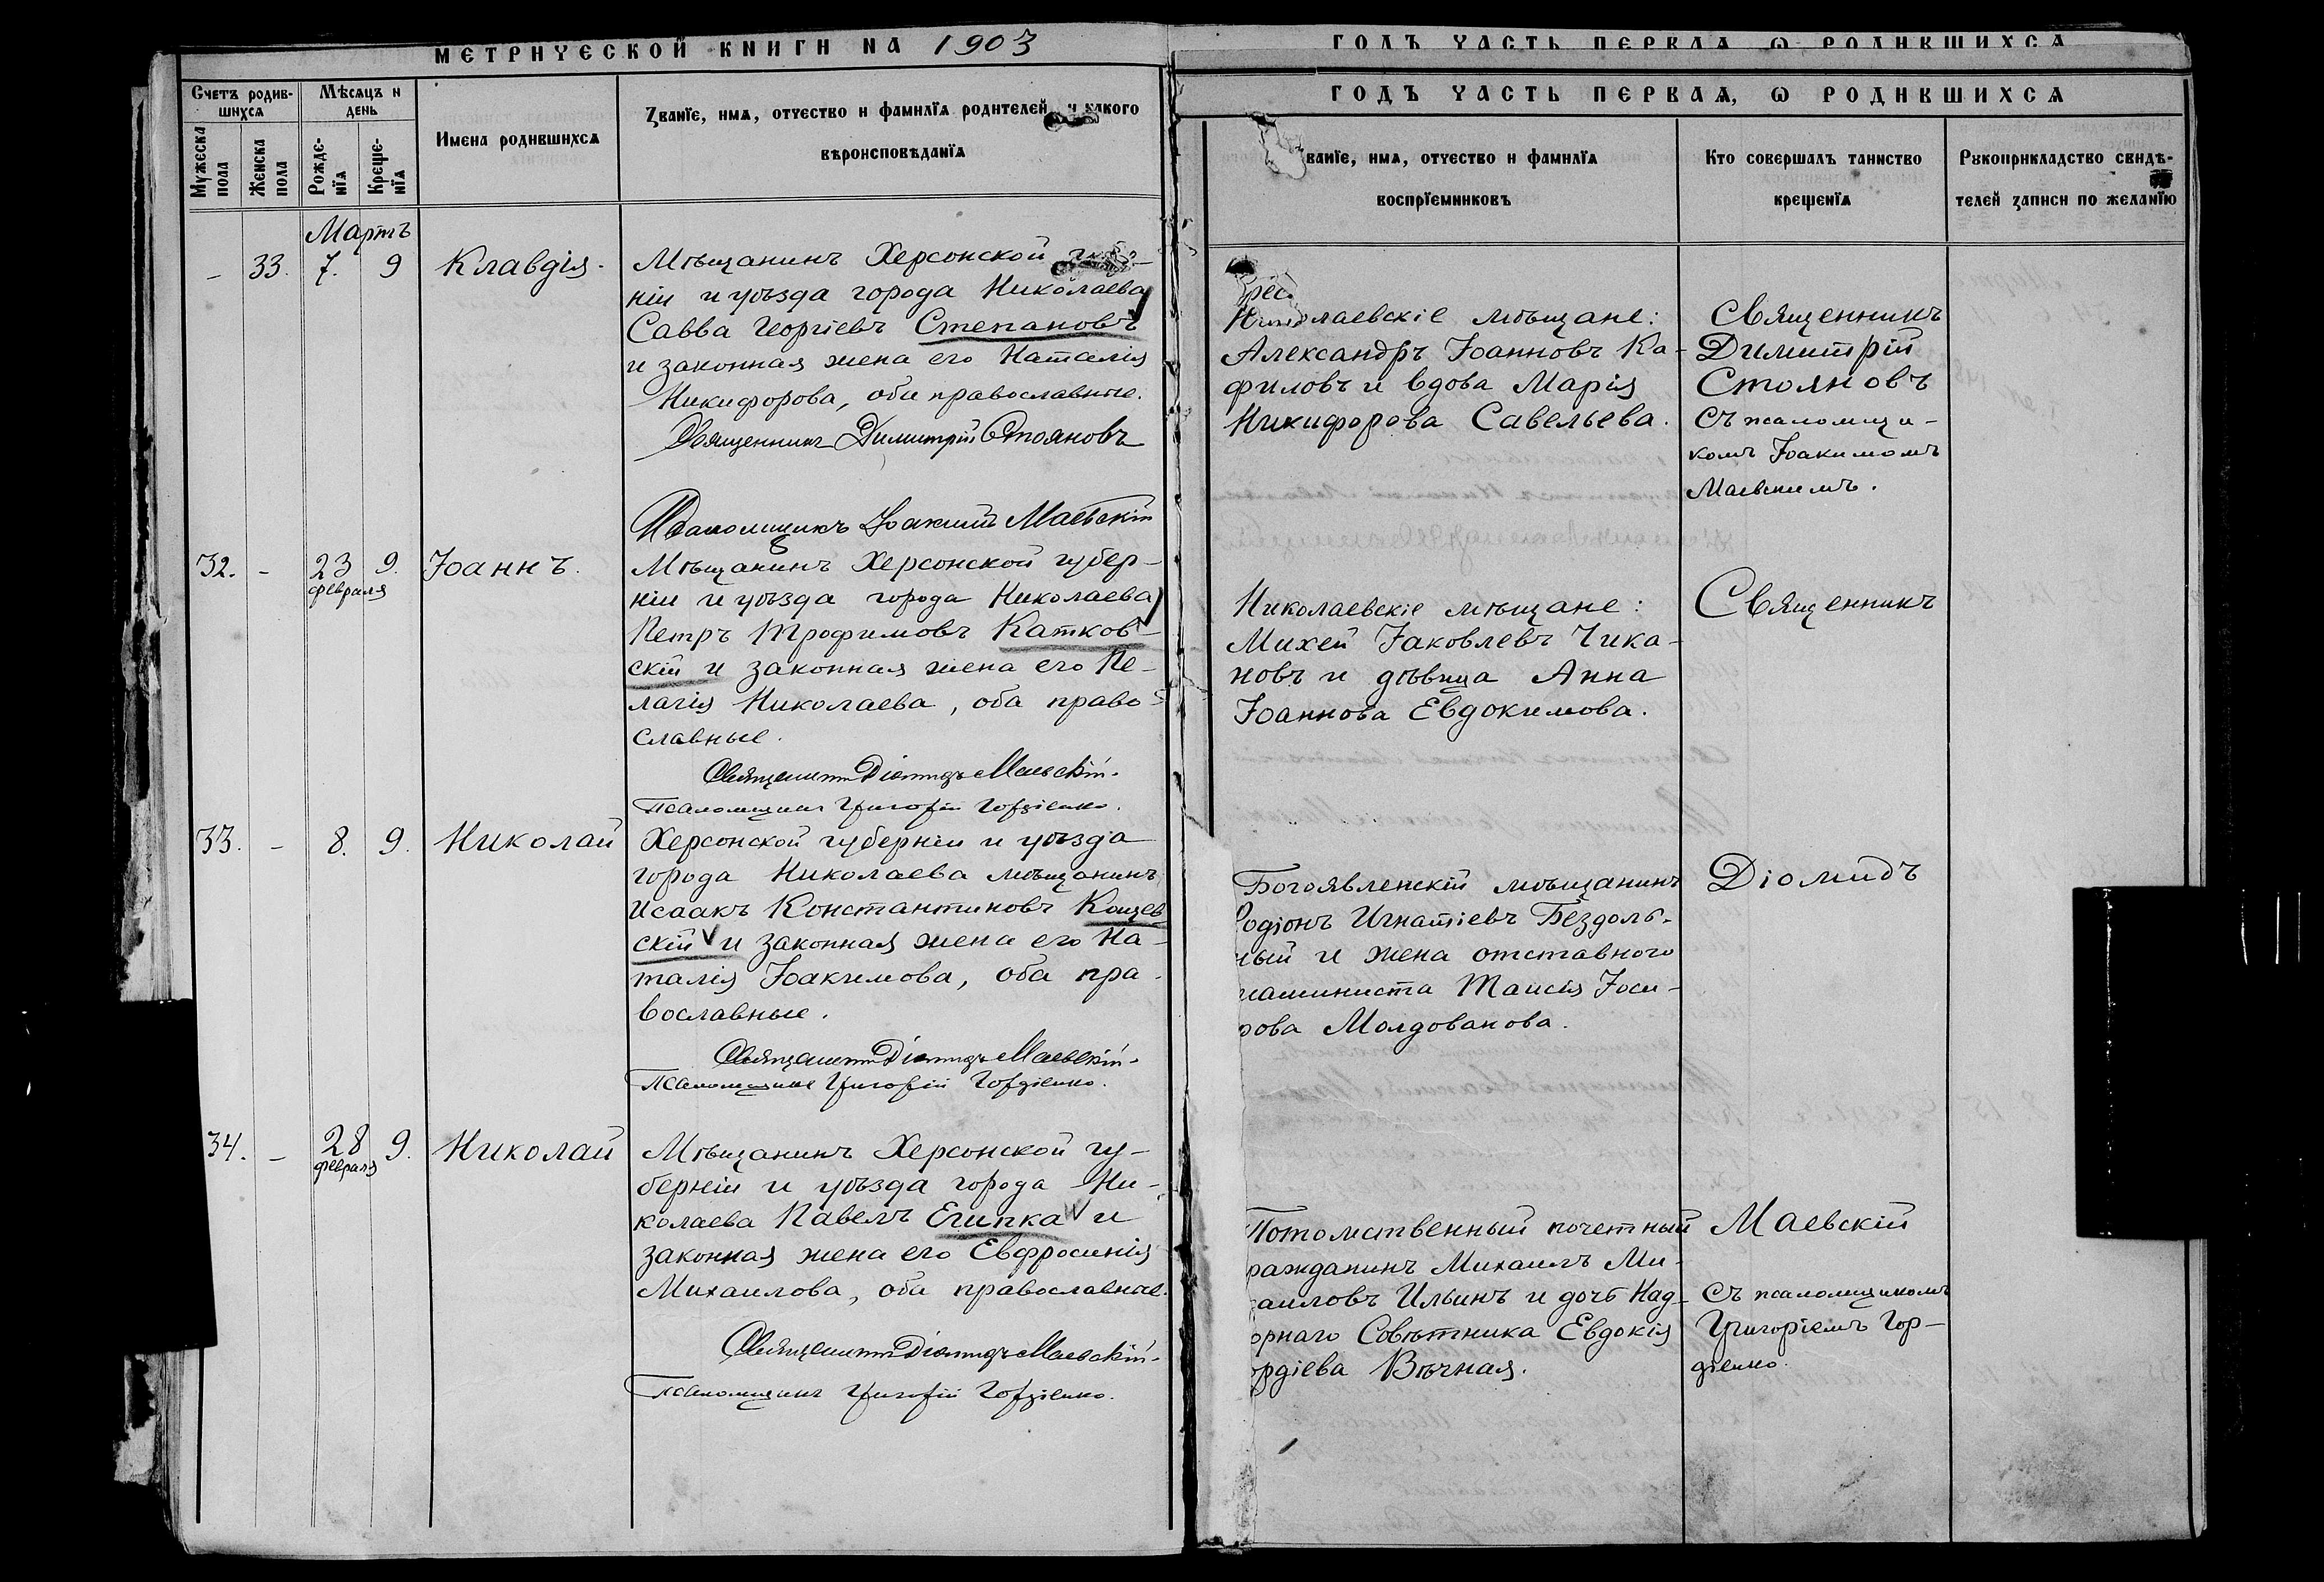 МЕТРИЧЕСКОЙ КНИГИ НА 1903
ГОДЪ ЧАСТЬ ПЕРВАЯ, Ѡ РОДИВШИХСЯ
ГОДЪ ЧАСТЬ ПЕРВАЯ, Ѡ РОДИВШИХСЯ
Счетъ родив-
шихся
Мужеска пола
Женска пола
Мѣсяцъ и
день
Рожде-
нїя
Креще-
нїя
Имена родившихся
Званїе, имя, отчество и фамилїя родителей, и какого
вѣроисповѣданїя
ванїе, имя, отчество и фамилїя
воспрїемниковъ
Кто совершалъ таинство
крещенїя
Рукоприкладство свидѣ-
телей записи по желанїю
Мартъ
– 33. 7. 9 Клавдія.
Мѣщанинъ Херсонской
ніи и уѣзда города Николаева
Савва Георгіевъ Степановъ
и законная жена его Наталія
Никифорова, оба православные.
Священникъ Димитрій Стояновъ
Псаломщикъ Іоакимъ Маевскій
Николаевскіе мѣщане:
Александръ Іоанновъ Ка-
филовъ и вдова Марія
Никифорова Савельева.
Священникъ
Димитрій
Стояновъ
Съ псаломщи-
комъ Іоакимомъ
Маевскимъ.
32. – 23 9. Іоаннъ.
февраля
Мѣщанинъ Херсонской губер-
ніи и уѣзда города Николаева
Петръ Трофимовъ Катков-
скій и законная жена его Пе-
лагія Николаева, оба право-
славные.
Священникъ Діомидъ Маевскій.
Псаломщикъ Григорій Гордіенко.
Николаевскіе мѣщане:
Михей Іаковлевъ Чика-
новъ и дѣвица Анна
Іоаннова Евдокимова.
Священникъ
33. – 8. 9. Николай
Херсонской губерніи и уѣзда
города Николаева мѣщанинъ
Исаакъ Константиновъ Кащев
скій и законная жена его На-
талія Іоакимова, оба пра-
вославные.
Священникъ Діомидъ Маевскій.
Псаломщикъ Григорій Гордіенко.
Богоявленскій мѣщанинъ
одіонъ Игнатіевъ Бездоль-
ный и жена отставного
машиниста Таисія Іоси-
рова Молдованова.
Діомидъ
34. – 28 9. Николай
февраля
Мѣщанинъ Херсонской гу-
берніи и уѣзда города Ни-
колаева Павелъ Египка и
законная жена его Евфросинія
Михаилова, оба православные.
Священникъ Діомидъ Маевскій.
Псаломщикъ Григорій Гордіенко.
Потомственный почетный
ражданинъ Михаилъ Ми-
аиловъ Ильинъ и дочь Над-
орнаго Совѣтника Евдокія
ордіева Вѣчная.
Маевскій
Съ псаломщикомъ
Григоріемъ Гор-
діенко.